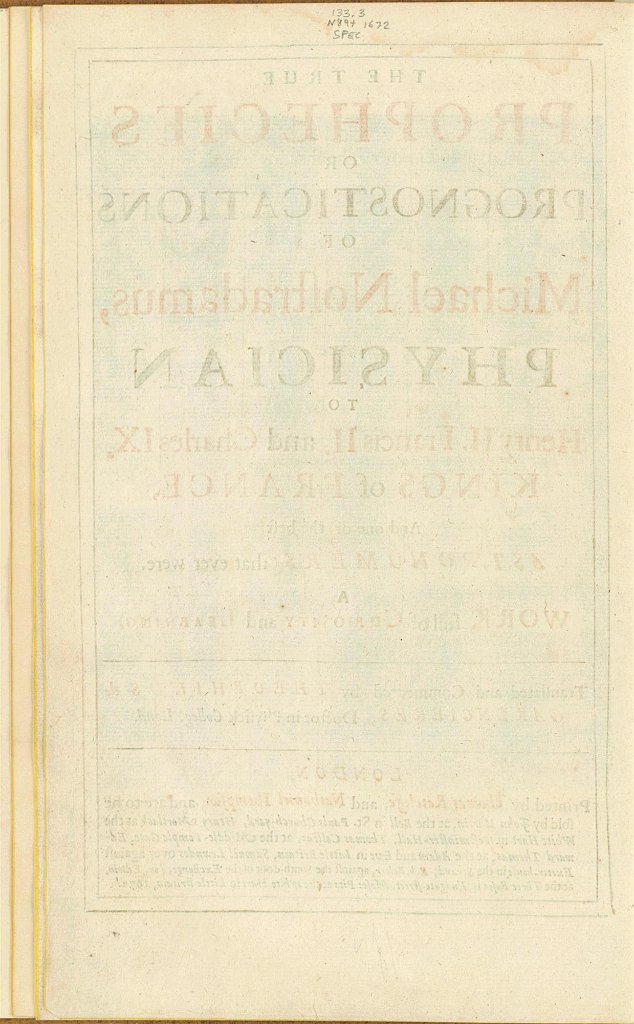 133.3
N894 1672
SPEC
THE TRUE
PROPHECIES
OR
PROGNOSTICATIONS
OF
Michael Noſtradamus,
PHYSICIAN
TO
Henry II. Francis II. and Charles IX.
KINGS of FRANCE,
And one of the beſt
ASTRONOMERS that ever were.
A
WORK full of CURIOSITY and LEARNING.
Tranſlated and Commented by THEOPHILUS de
GARENCIERES, Doctor in Phyſick Colleg. Lond.
LONDON,
Printed by Thomas Ratcliffe, and Nathaniel Thompſon, and are to be
ſold by John Martin, at the Bell in St. Pauls Church-yard, Henry Mortlack at the
White Hart in Weſtminſter-Hall, Thomas Collins, at the Middle-Temple Gate, Ed-
ward Thomas, at the Adam and Eve in Little Britain, Samuel Lowndes over againſt
the Strand, againſt the South door of the Exchange,